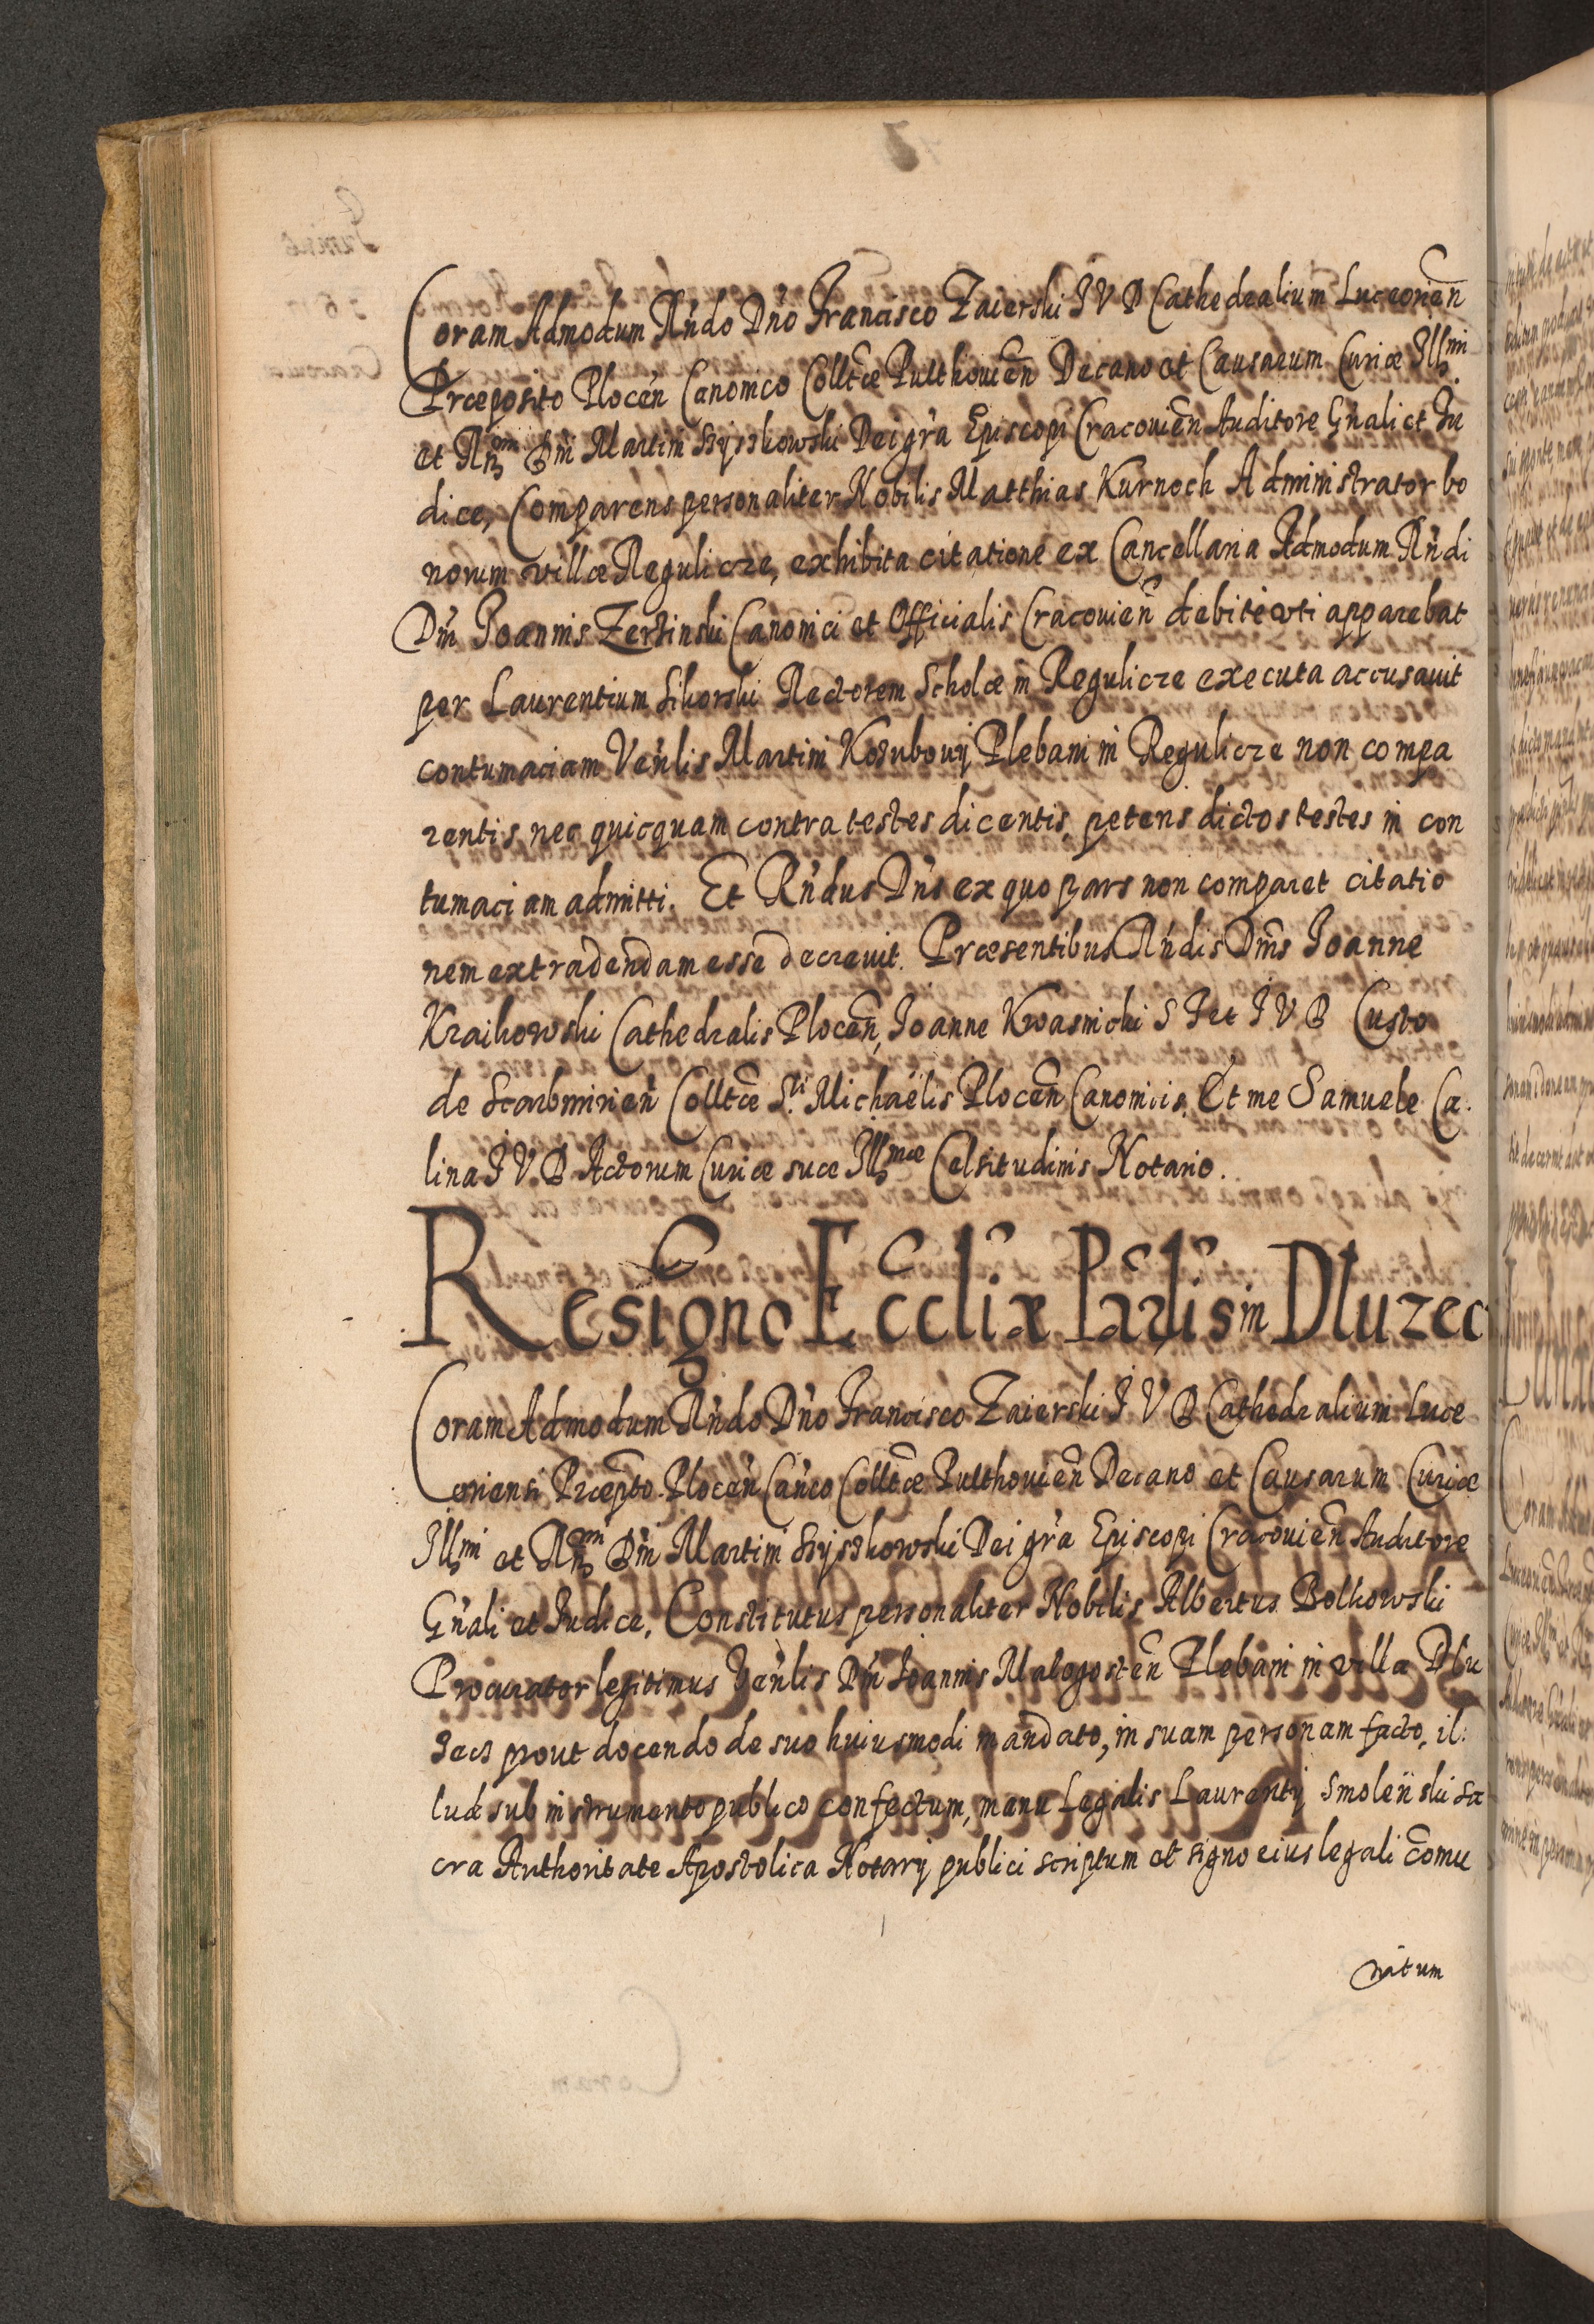 Coram Admodum Rńdo Dńo Francisco Zaierski I V D Cathedralium Luceorień
Præposito Plocen Canonico Colltæ Pulthouień Decano et Causarum Curiæ Illmi
et Rmi Dni Martini Szyszkowski Dei gra Episcopi Cracouień Auditore Gnali et Iu
dice, Comparens personaliter Nobilis Matthias Kurnoch Administrator bo
norum villæ Regulicze, exhibita citatione ex Cancellaria Admodum Rńdi
Dni Joannis Zerzinski Canonici et Officialis Cracouień debite vti apparebat
per Laurentium Sikorski Rectorem Scholæ in Regulicze executa accusauit
contumaciam Venlis Martini Kozubouij Plebani in Regulicze non compa
rentis nec quicquam contra testes dicentis, petens dictos testes in con
tumaciam admitti. Et Rńdus Dńs ex quo pars non comparet citatio
nem extradendam esse decreuit. Præsentibus Rńdis Dnis Joanne
Kraikowski Cathedralis Plocen, Joanne Kwasnicki S T et I V D Custo
de Scarbimirień Colltæ Sti Michaëlis Plocen Canonicis, Et me Samuele Ca.
lina I V D Actorum Curiæ suæ Illmæ Celsitudinis Notario.
Resigno Eccliæ Parlis in Dluzec
Coram Admodum Rńdo Dńo Francisco Zaierski I V D Cathedralium Luce
oriensi Præpto Plocen Canco Colltæ Pulthouień Decano et Causarum Curiæ
Illmi et Rmi Dni Martini Szyszkowski Dei gra Episcopi Cracouień Auditore
Gnali et Iudice, Constitutus personaliter Nobilis Albertus Bolkowski
Procurator legitimus Venlis Dni Joannis Malogosten Plebani in villa Dlu
zecz prout docendo de suo huiusmodi mandato, in suam personam facto, il:
lud sub instrumento publico confectum, manu Legalis Laurentij Smolenski sa
cra Authoritate Apostolica Notarij publici scriptum et signo eius legali comu
niatum